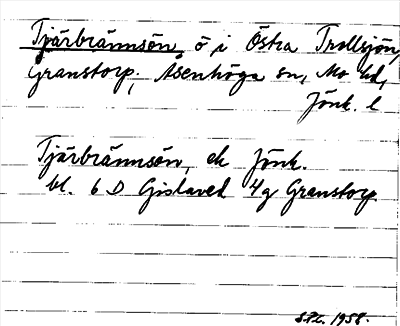 Tjärbrännsön, ö i Östra Trollsjön,
Granstorp, Åsenhöga sn, Mo hd,
Jönk. l
Tjärbrännsön, ek Jönk.
bl. 6 D Gislaved 4g Granstorp
1958.